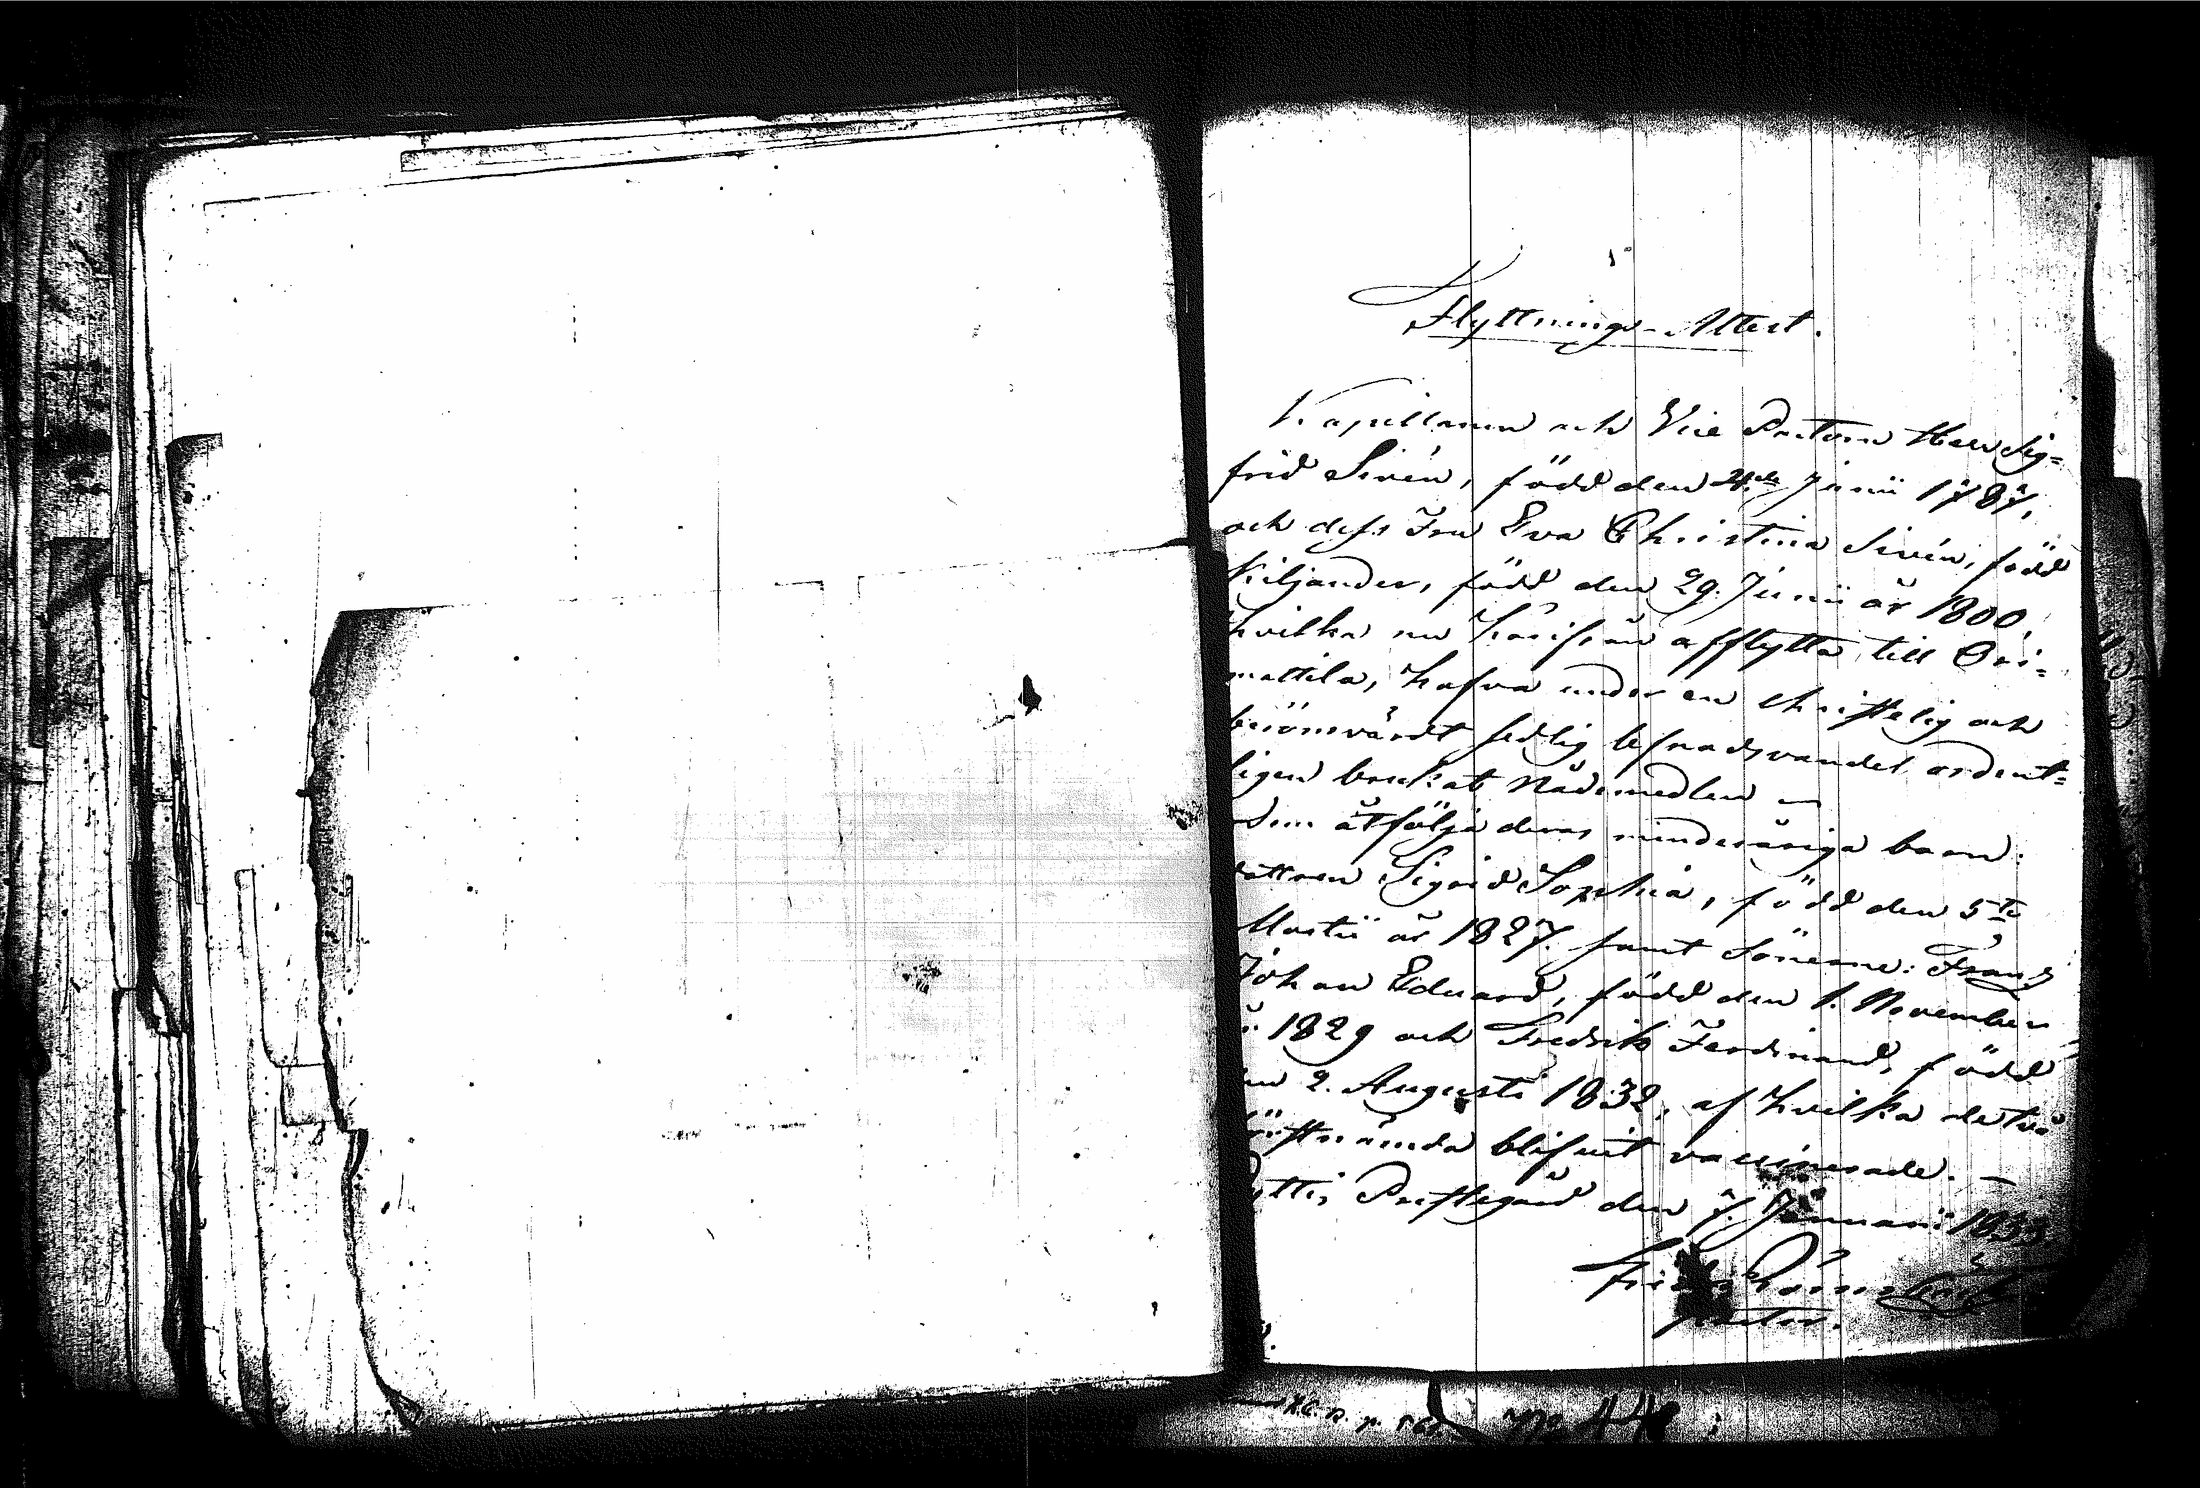 1.
Flyttnings-Attest.
Kapellanen och Vice Pastorn Herr Sig=
frid Sirén, född den Junii 1787,
och dess Fru Eva Christina Sirén, född
Kiljander, född den 29. Junii år 1800,
hvilka nu härifrån afflytta till Ori=
mattila, hafva under en christelig och
berömvärdt sedlig lefnadsvandel ordent=
ligen brukat Nådemedlen —
Dem åtfölja deras minderåriga barn:
dottren Sigrid Sophia, född den 5te
Martii år 1827. samt Sönerne: Frans
Johan Eduard, född den 1. November
år 1829 och Fredrik Ferdinand, född
den 2. Augusti 1832, af hvilka de två
förstnämnda blifvit vaccinerade. —
Pyttis Prestegård den 7. Januarii 1833.
Pastor.